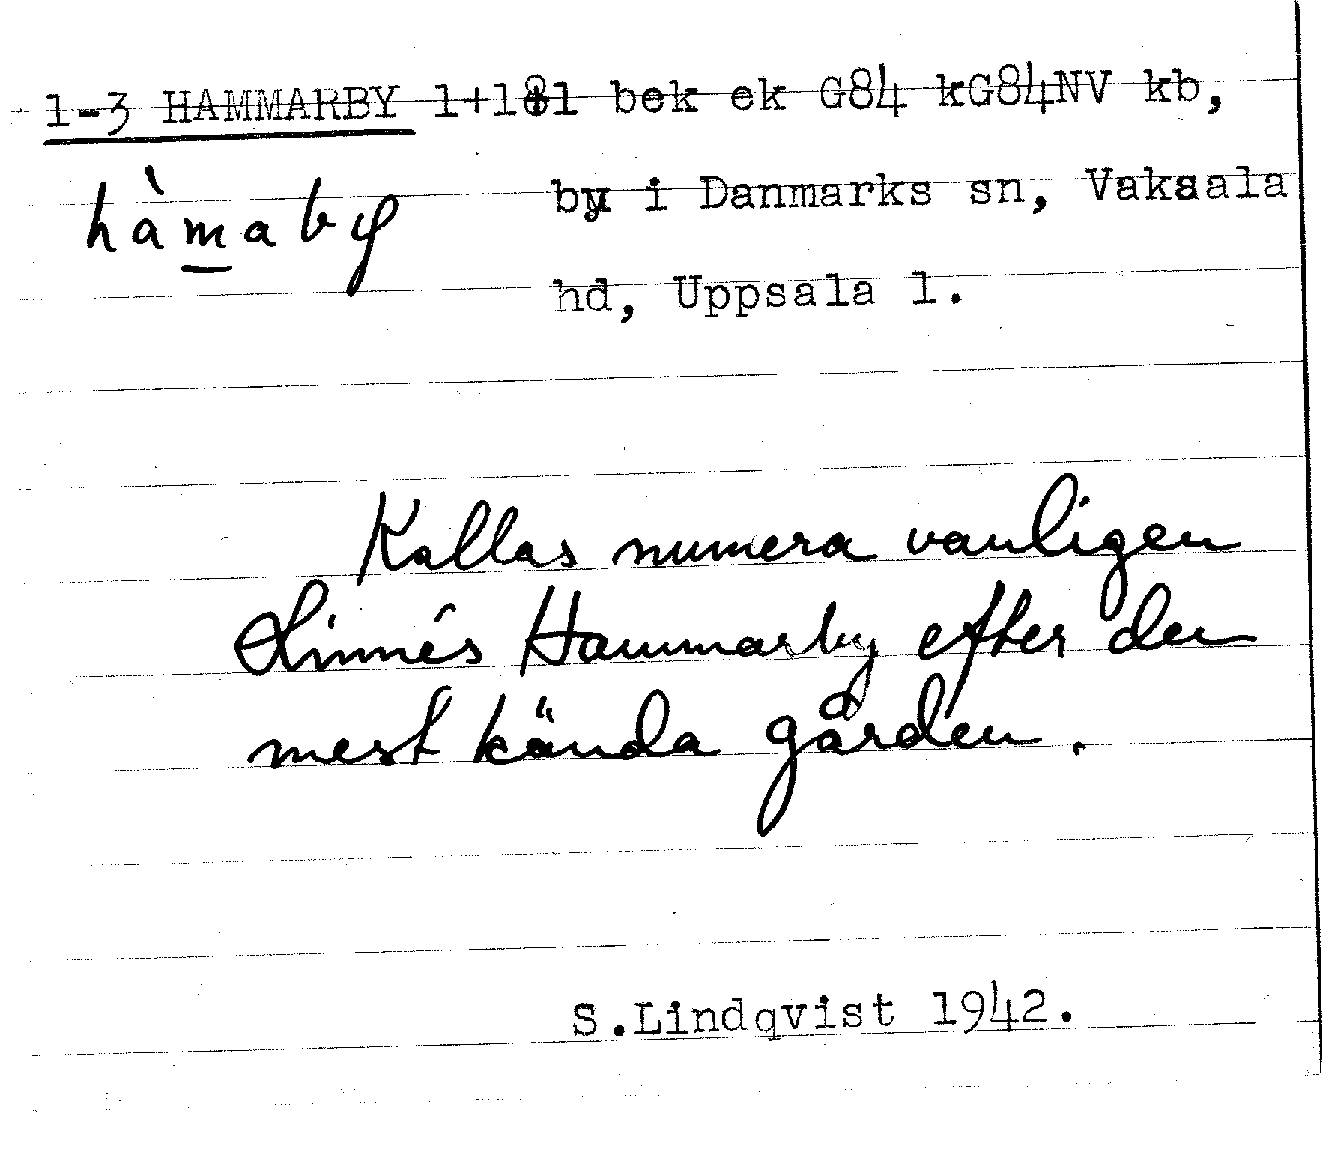 1-3 HAMMARBY 1+1 1 bek ek G84 kG84NV kb,
by i Danmarks sn, Vaksala
hàmaby
hd, Uppsala l.
Kallas numera vanligen
Linnés Hammarby efter den
mest kända gården.
S.Lindqvist 1942.